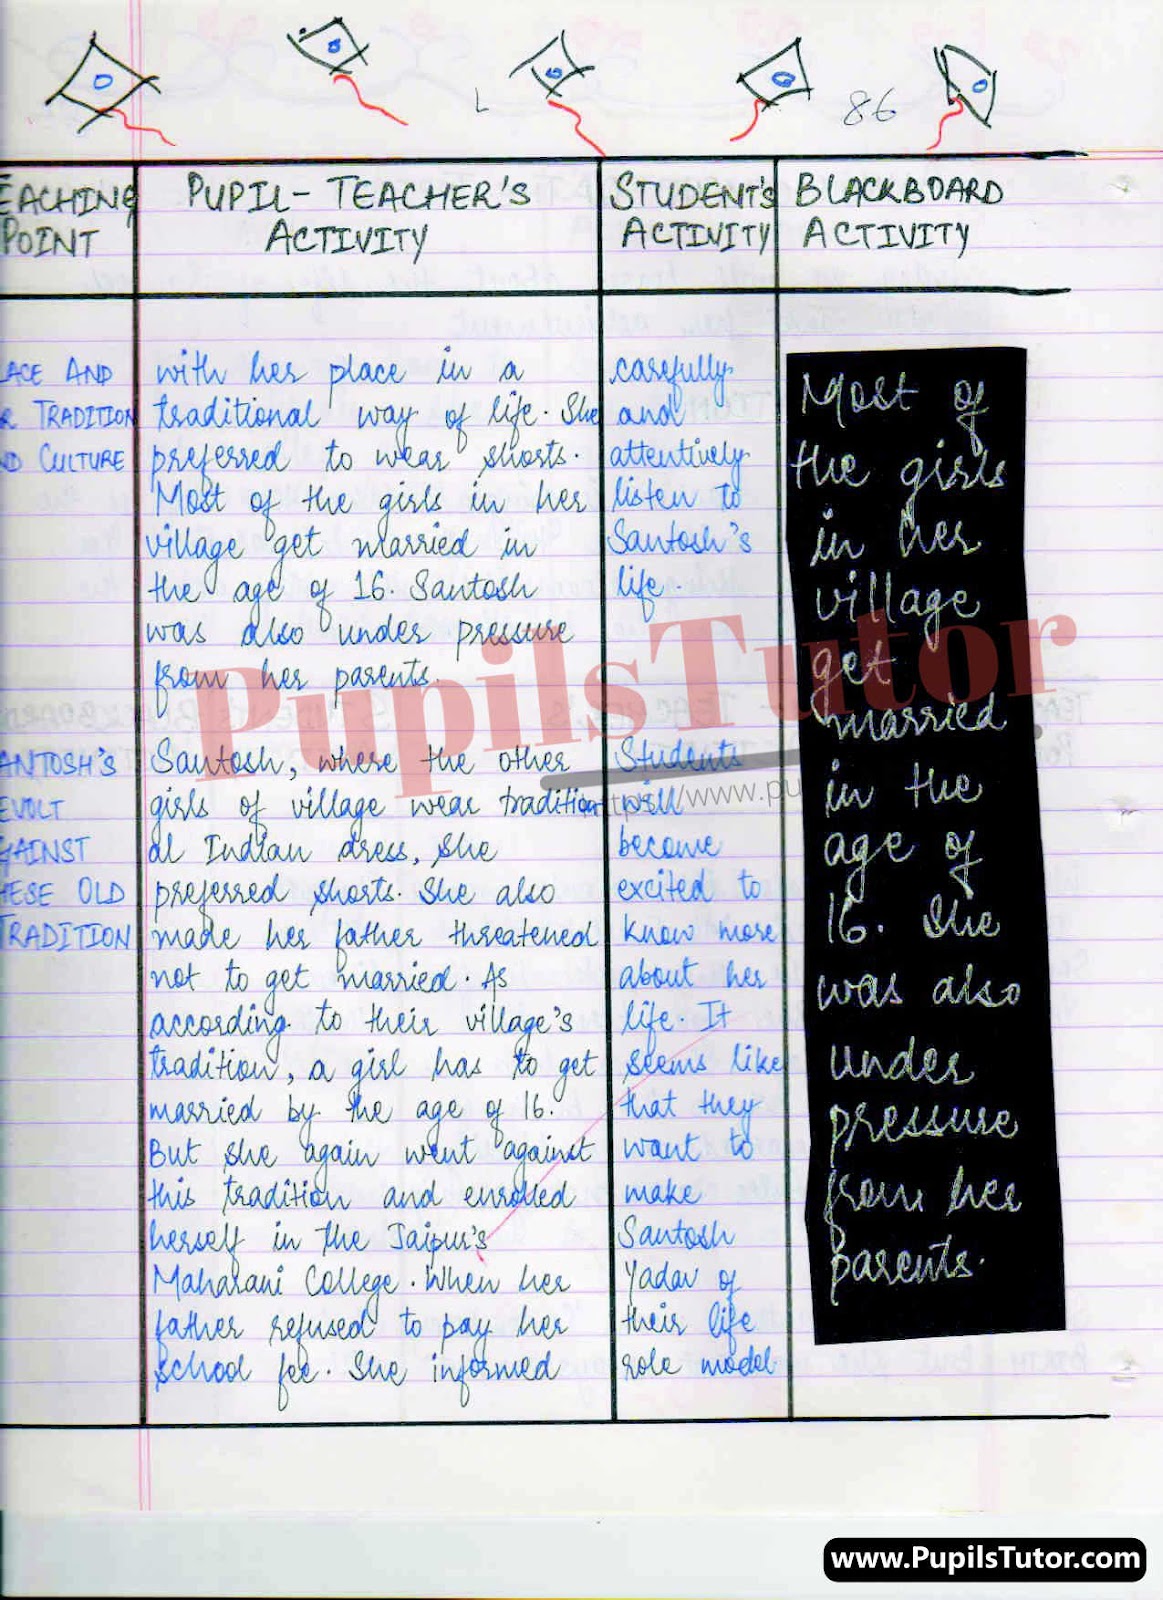 86
EACHING
POINT
PUPIL - TEACHER'S
ACTIVITY
STUDENT'S
ACTIVITY
BLACKBOARD
ACTIVITY
LACE AND
R TRADITION
ND CULTURE
with her place in a
traditional way of life. She
preferred to wear shorts.
Most of the girls in her
village get married in
the age of 16. Santosh
was also under pressure
from her parents.
carefully
and
attentively
listen to
Santosh's
life.
Most of
the girls
in her
village
get
married
in the
age of
16. She
was also
under
pressure
from her
parents.
ANTOSH'S
EVOLT
GAINST
HESE OLD
TRADITION
Santosh, where the other
girls of village wear tradition
al Indian dress, she
preferred shorts. She also
made her father threatened
not to get married. As
according to their village's
tradition, a girl has to get
married by the age of 16.
But she again went against
this tradition and enrolled
herself in the Jaipur's
Maharani College. When her
father refused to pay her
school fee. She informed
Students
will
become
excited to
know more
about her
life. It
seems like
that they
want to
make
Santosh
Yadav of
their life
role model
PupilsTutor
www.PupilsTutor.com